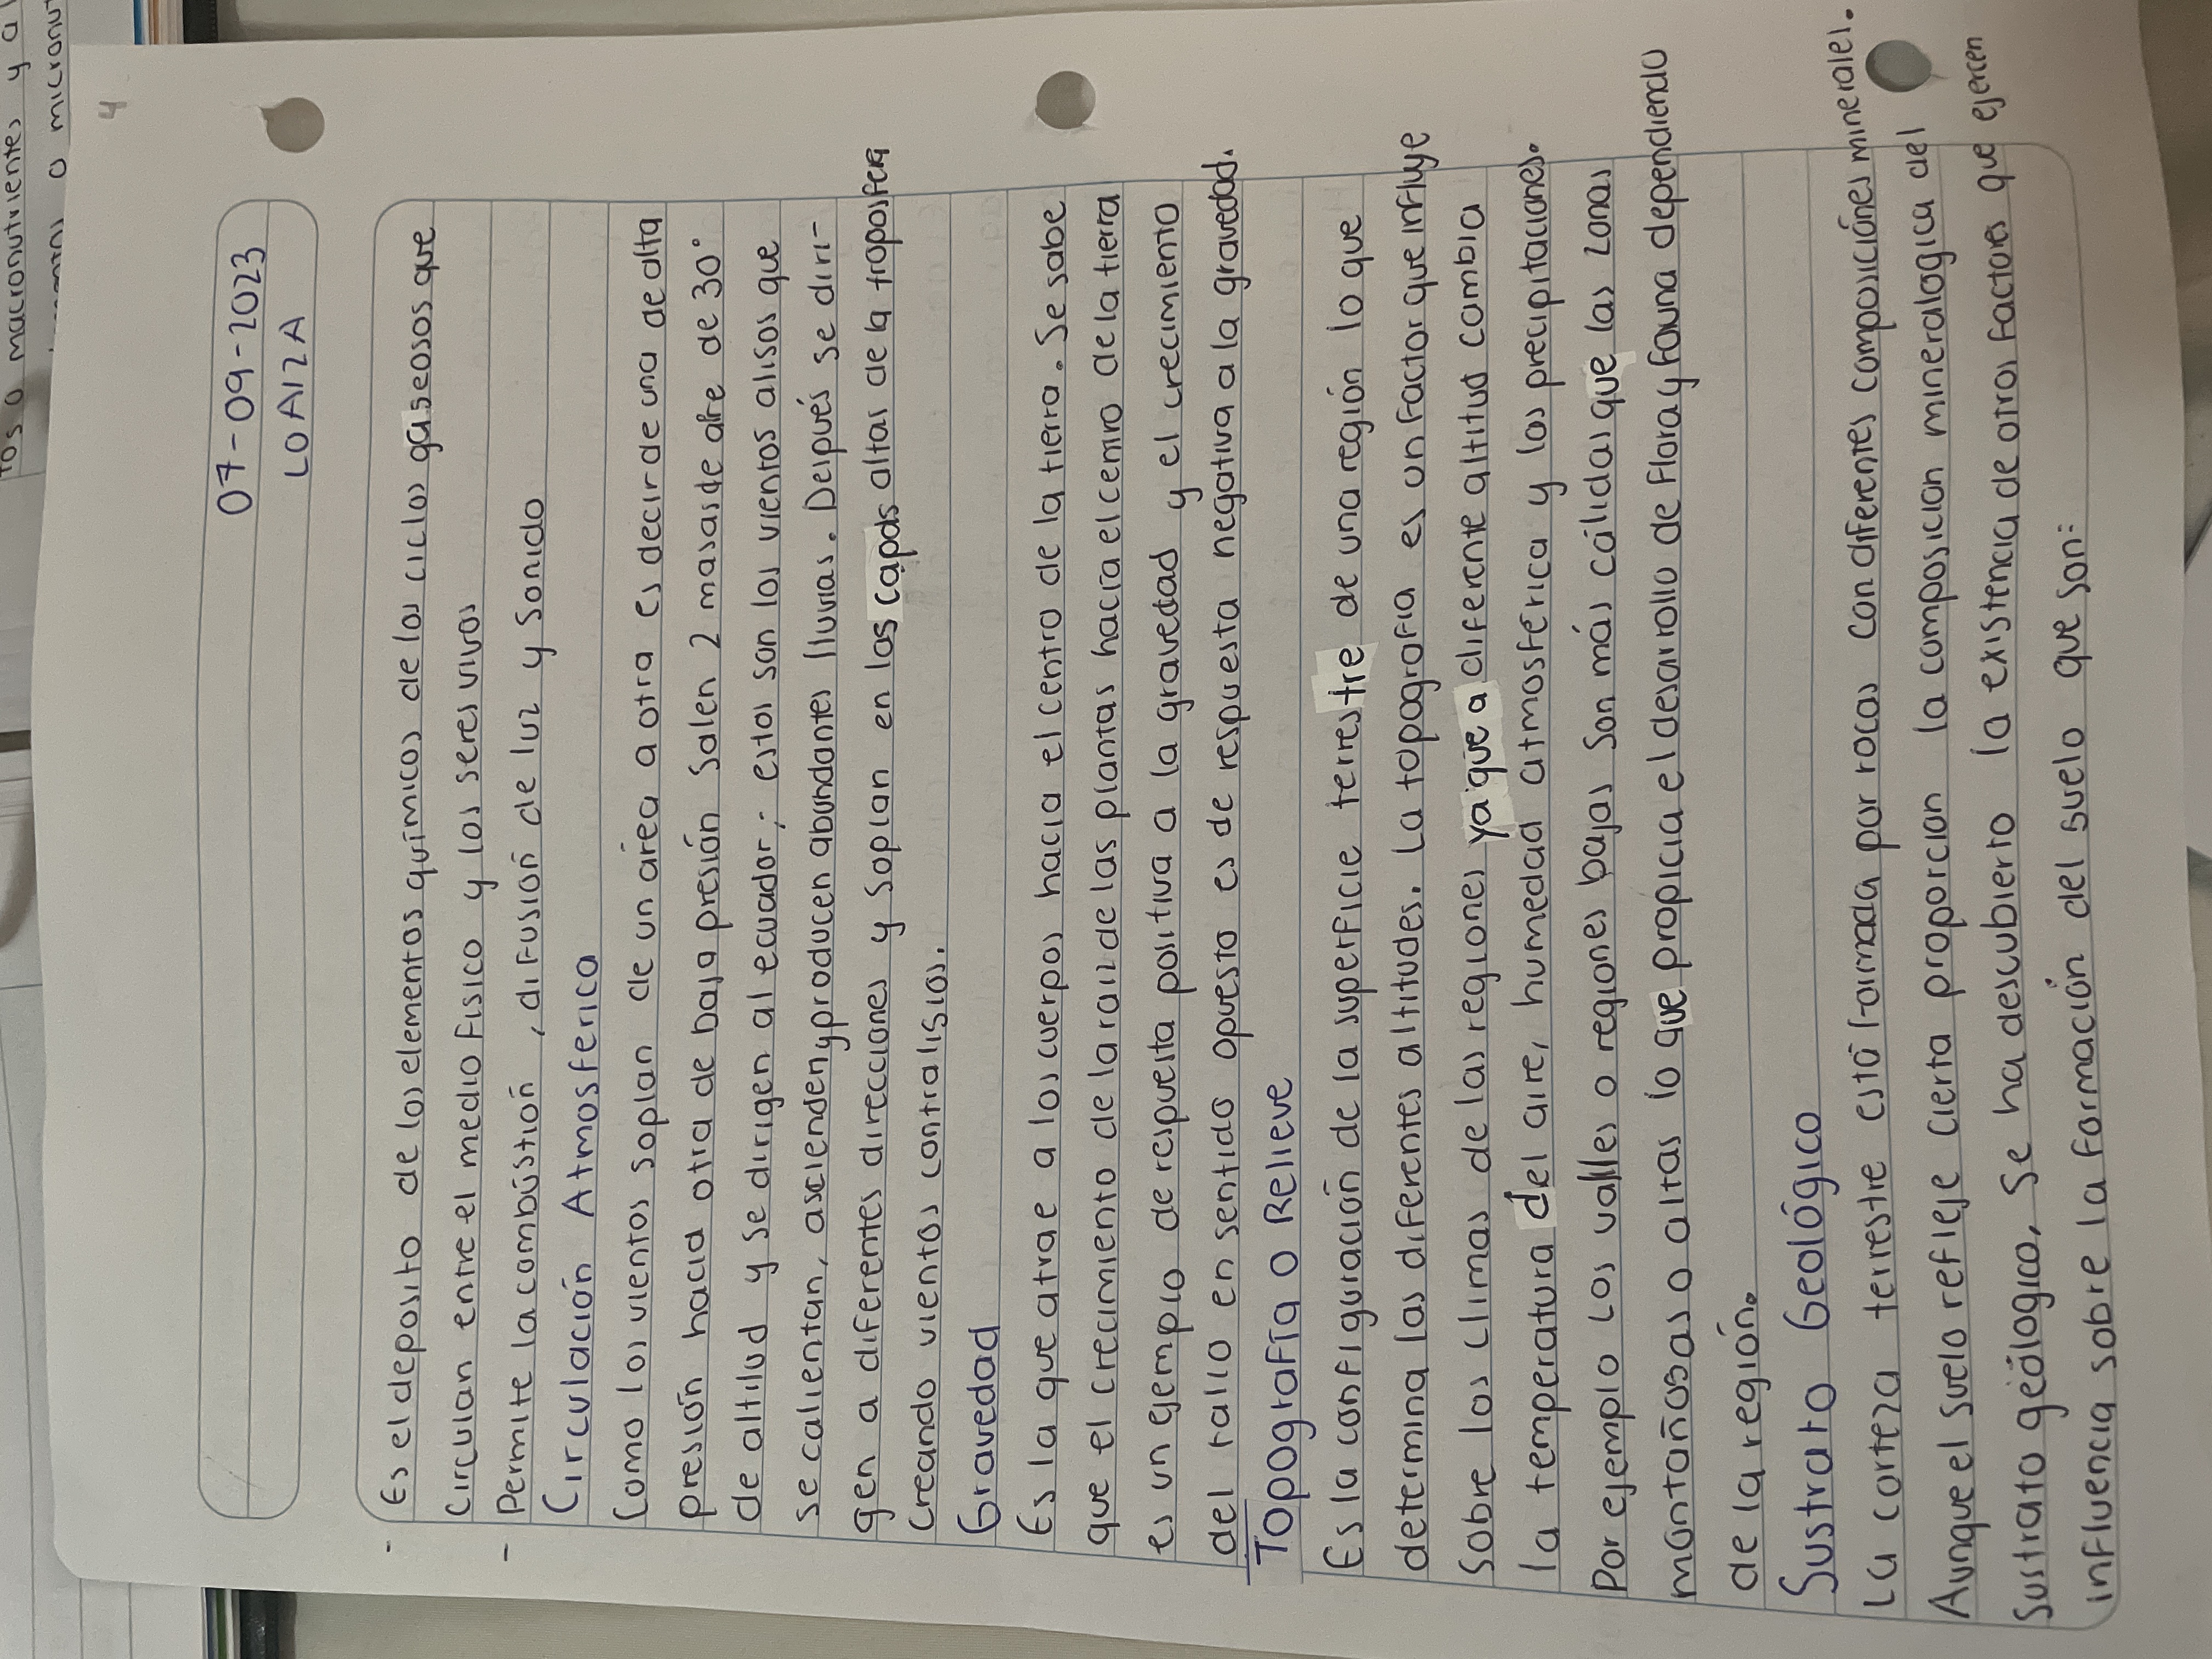 4
07-09-2023
LOAIZA
- Es el deposito de los elementos químicos de los ciclos gaseosos que
circulan entre el medio fisico y los seres vivos
- Permite la combústion, difusión de luz y sonido
Circulación Atmosferica
Como los vientos soplan de un área a otra es decir de una de alta
presión hacia otra de baja presión salen 2 masas de aire de 30°
de altitud y se dirigen al ecuador; estos son los vientos alisos que
se calientan, ascienden y producen abundantes lluvias. Después se diri-
gen a diferentes direcciones y soplan en las capas altas de la troposfera
creando vientos contralisios.
Gravedad
Es la que atrae a los cuerpos hacia el centro de la tierra. Se sabe
que el crecimiento de la raiz de las plantas hacia el centro de la tierra
es un ejemplo de respuesta positiva a la gravedad y el crecimiento
del tallo en sentido opuesto es de respuesta negativa a la gravedad.
Topografía o Relieve
Es la configuración de la superficie terrestre de una región lo que
determina las diferentes altitudes. La topografia es un factor que influye
sobre los climas de las regiones ya que a diferente altitud cambia
la temperatura del aire, humedad atmosférica y las precipitaciones.
Por ejemplo los valles o regiones bajas son más cálidas que las zonas
montañosas o altas lo que propicia el desarollo de flora y fauna dependiendo
de la región.
Sustrato Geológico
La corteza terrestre está formada por rocas con diferentes composiciónes minerales.
Aunque el suelo refleje cierta proporcion la composicion mineralogica del
sustrato géologico. Se ha descubierto la existencia de otros factores que ejercen
influencia sobre la formación del suelo que son:
tos o macronutrientes y a
o micronut